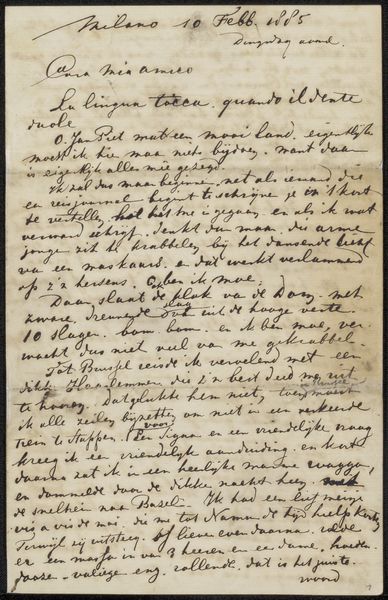 Milano 10 Febb. 1885
Dingsdag avond.
Cara mia amico
La lingua tocca quando il dente
duole
O. Jan Piet wat een mooi land. eigentlijk
moest ik hier maar niets bijdoen, want daar
is eigenlijk alles mee gezegd.
Ik zal dus maar beginnen net als iemand, die
een reisjournal begint te schrijven je in 't kort
te vertellen hoe het me is gegaan en als ik wat
verward schrijf, denkt dan maar, die arme
jonge zit te krabbelen bij het dansende licht
van een maskaars. en dat werkt verlammend
op z'n hersens. Ook ben ik moe,
Daar slaat de klok van de Dom. met
zware, dreunende slag uit de hooge verte.
10 slagen. bom. bom. en ik ben moe, ver
wacht dus niet veel van me gekrabbel
Tot Brussel reisde ik vervelend met een
dikke Haarlemmer. die z'n best deed me uit
te hooren. Dat gelukte hem niet, toen moest
ik alle zeilen bijzetten om niet in een verkeerde
trein te stappen. Voor een sigaar en een vriendelijke vraag
kreeg ik een vriendelijke aanduiding. en kort
daarna zat ik in een heerlijke warme waggon,
en dommelde door de dikke nacht heen
de snelheid naar Basel. Ik had een
vis a vis de moi. die me tot Namen de tijd hielp korten
Terwijl zij uitsteeg of liever even daarna. rolde
er een massa in van 3 heeren en een dame, hoeden
doozen valiezen enz. rollende. dat is het juiste
woord